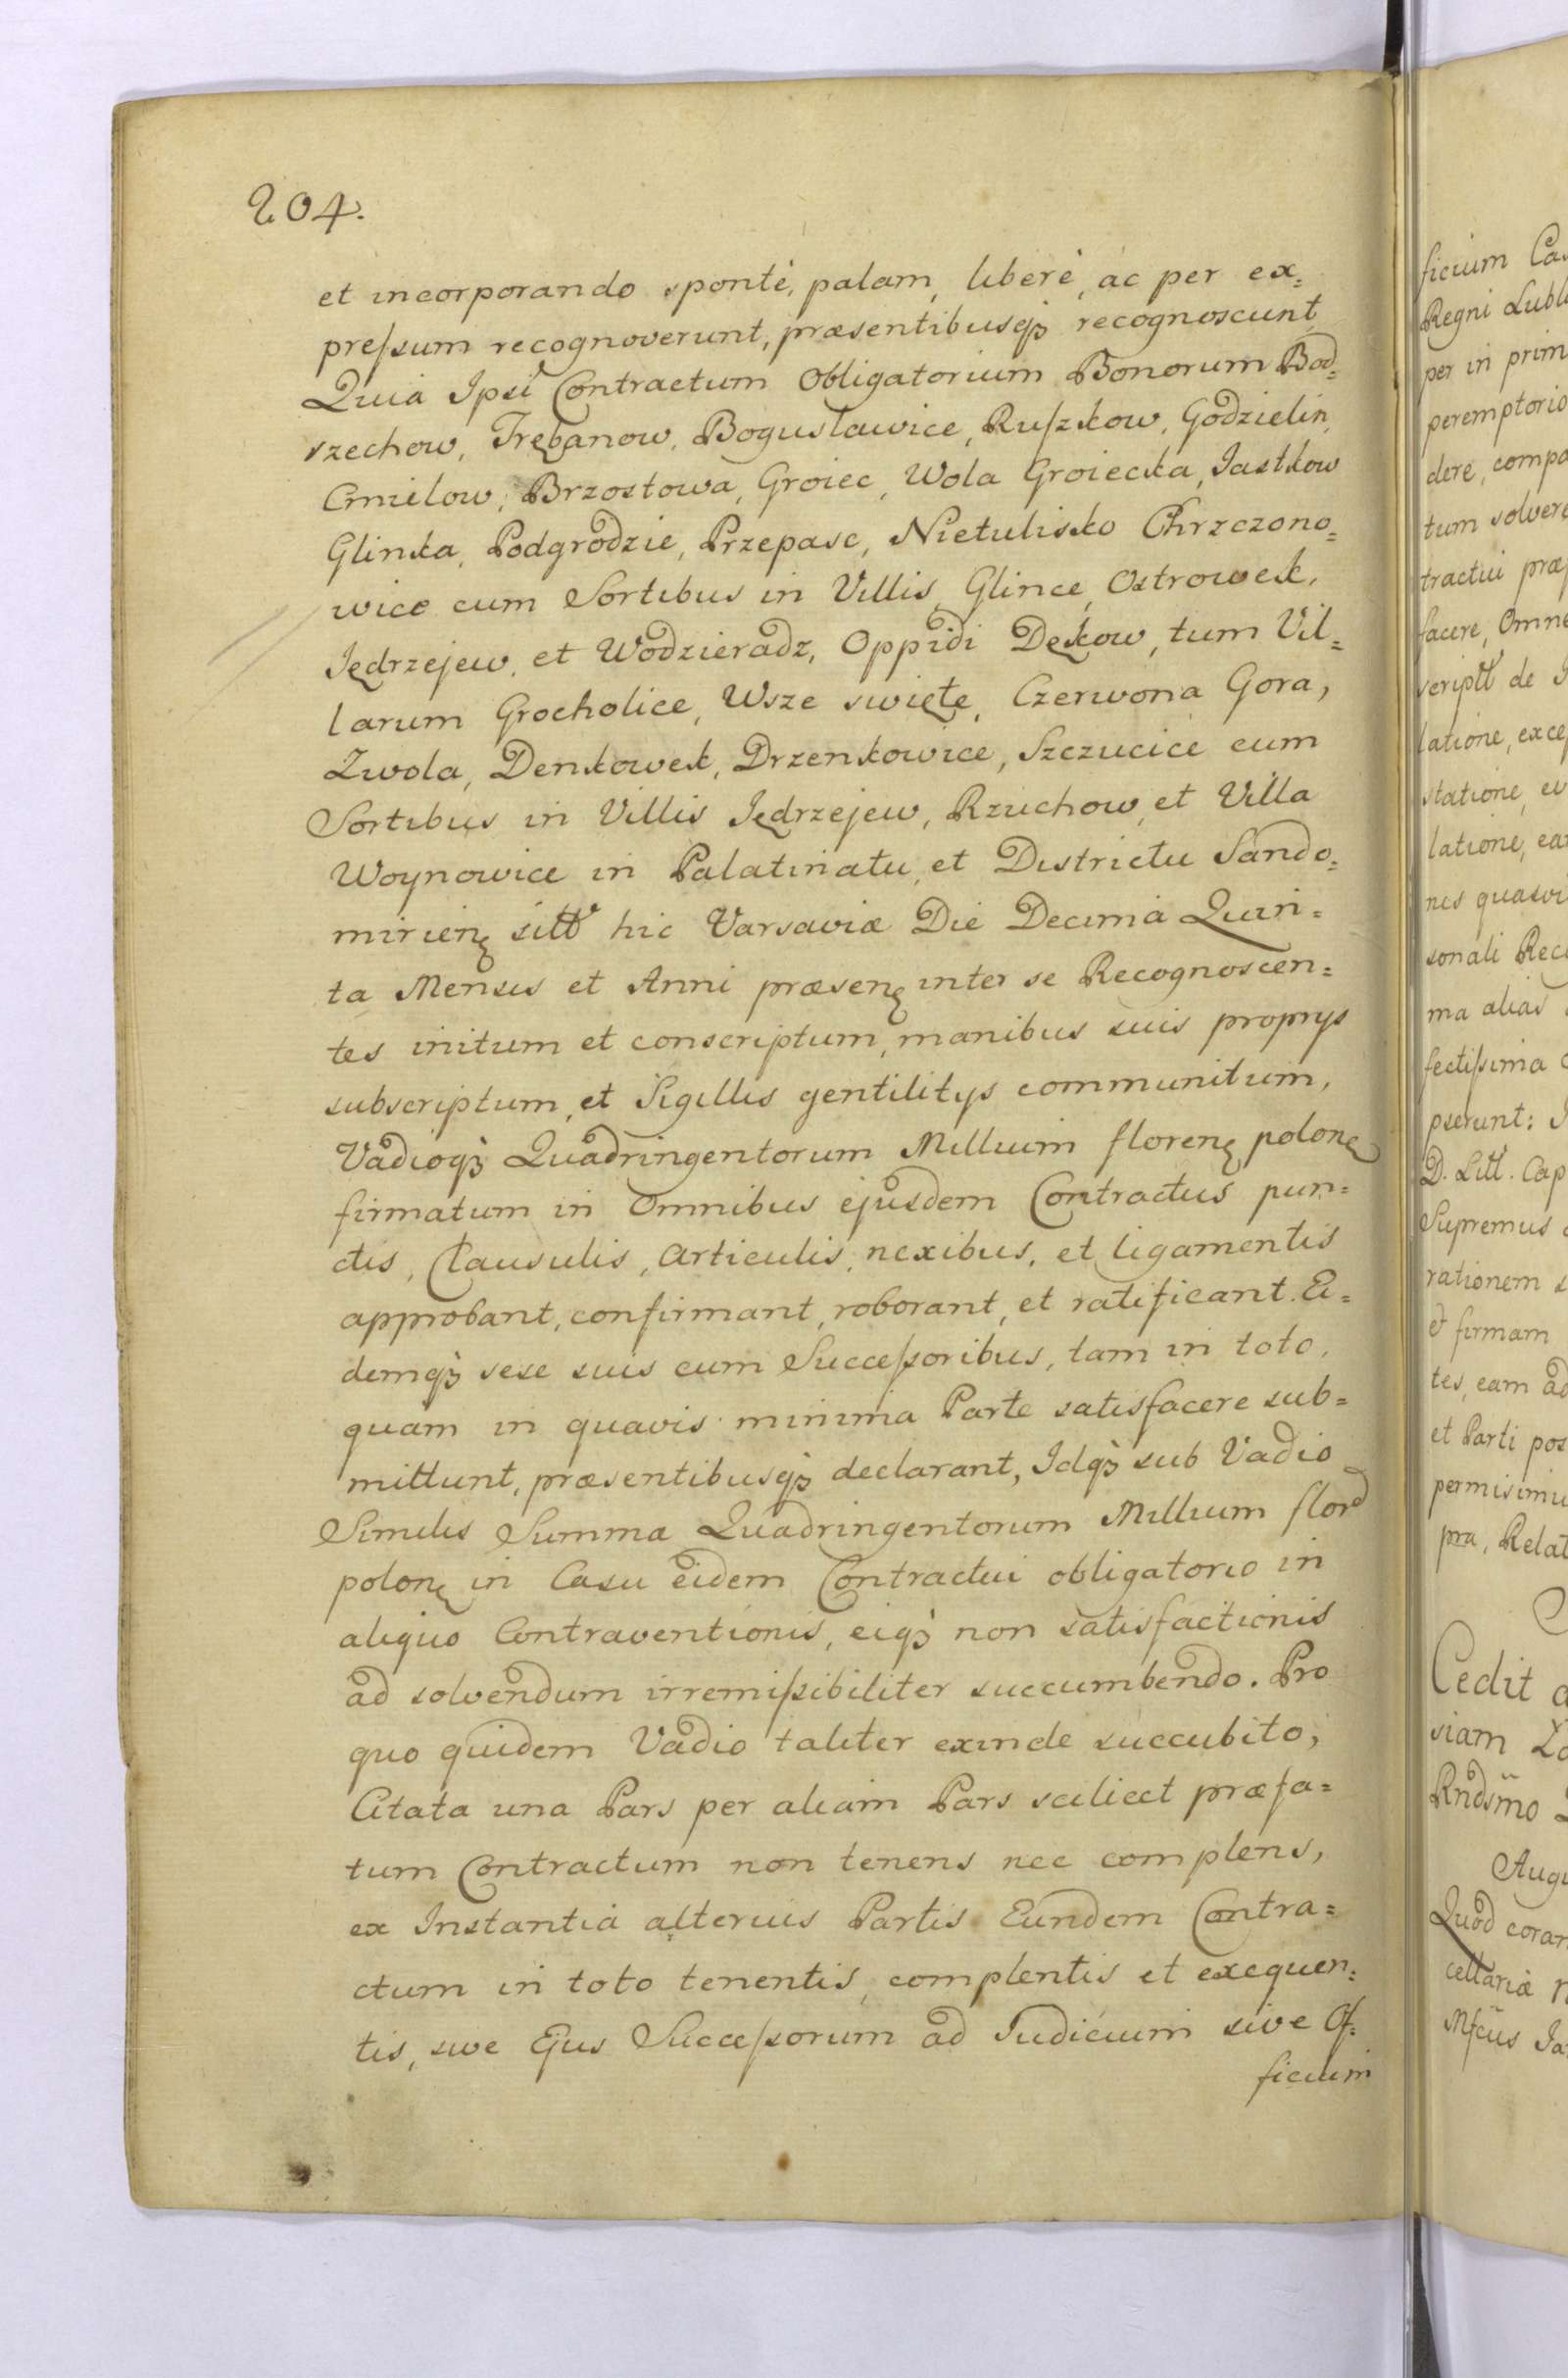 204.
et incorporando spontè, palam, liberè, ac per ex=
preſsum recognoverunt, præsentibusqꝫ recognoscunt
Quia Ipsi Contractum Obligatorium Bonorum Bod=
szechow, Trębanow, Bogusławice, Ruſzkow, Godzielin,
Cmielow, Brzostowa, Groiec, Wola Groiecka, Jastkow
Glinka, Podgrodzie, Przepasc, Nietulisko Chrzczono=
wice cum Sortibus in Villis, Glince, Ostrowek,
Jędrzejew, et Wodzieradz, Oppidi Dękow, tum Vil=
larum Grocholice, Wsze swięte, Czerwona Gora,
Zwola, Denkowek, Drzenkowice, Szczucice cum
Sortibus in Villis Jędrzejew, Rzuchow, et Villa
Woynowice in Palatinatu, et Districtu Sando=
mirien̨ sitt hic Varsaviæ Die Decima Quin=
ta Mensis et Anni præsen̨ inter se Recognoscen=
tes initum et conscriptum, manibus suis proprys
subscriptum, et Sigillis gentilitys communitum,
Vadioqꝫ Quadringentorum Millium floren̨ polon̨
firmatum in Omnibus ejusdem Contractus pun=
ctis, Clausulis, Articulis, nexibus, et ligamentis
approbant, confirmant, roborant, et ratificant. Ei=
demqꝫ sese suis cum Succeſsoribus, tam in toto,
quam in quavis minima Parte satisfacere sub=
mittunt, præsentibusqꝫ declarant, Idqꝫ sub Vadio
Similis Summa Quadringentorum Millium flor
polon̨ in Casu eidem Contractui obligatorio in
aliquo Contraventionis, eiqꝫ non satisfactionis
ad solvendum irremiſsibiliter succumbendo. Pro
quo quidem Vadio taliter exinde succubito,
Citata una Pars per aliam Pars scilicet præfa=
tum Contractum non tenens nec complens,
ex Instantia alterius Partis Eundem Contra=
ctum in toto tenentis, complentis et exequen=
tis, sive Ejus Succeſsorum ad Judicium sive Of=
ficium
ficium
Regni
per in prim
peremptorio
dere, compa
tum solvere
tractui præ
facere, Omne
script de
latione, exce
statione, ev
latione, ea
nes quasvi
sonali Rec
ma alias
fectiſsima
pserunt:
D. Litt. Cap
Supremus
rationem
et firmam
tes, eam ad
et Parti pos
permisimu
pra, Relat
Cedit
siam
Rndsm̃o
Augu
Quod coram
cellariæ
Mfcus